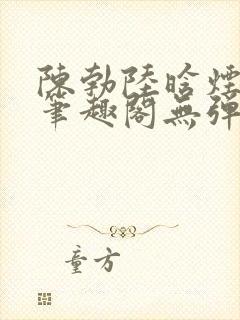 陳勃陸晗煙
筆趣閣無彈
童方